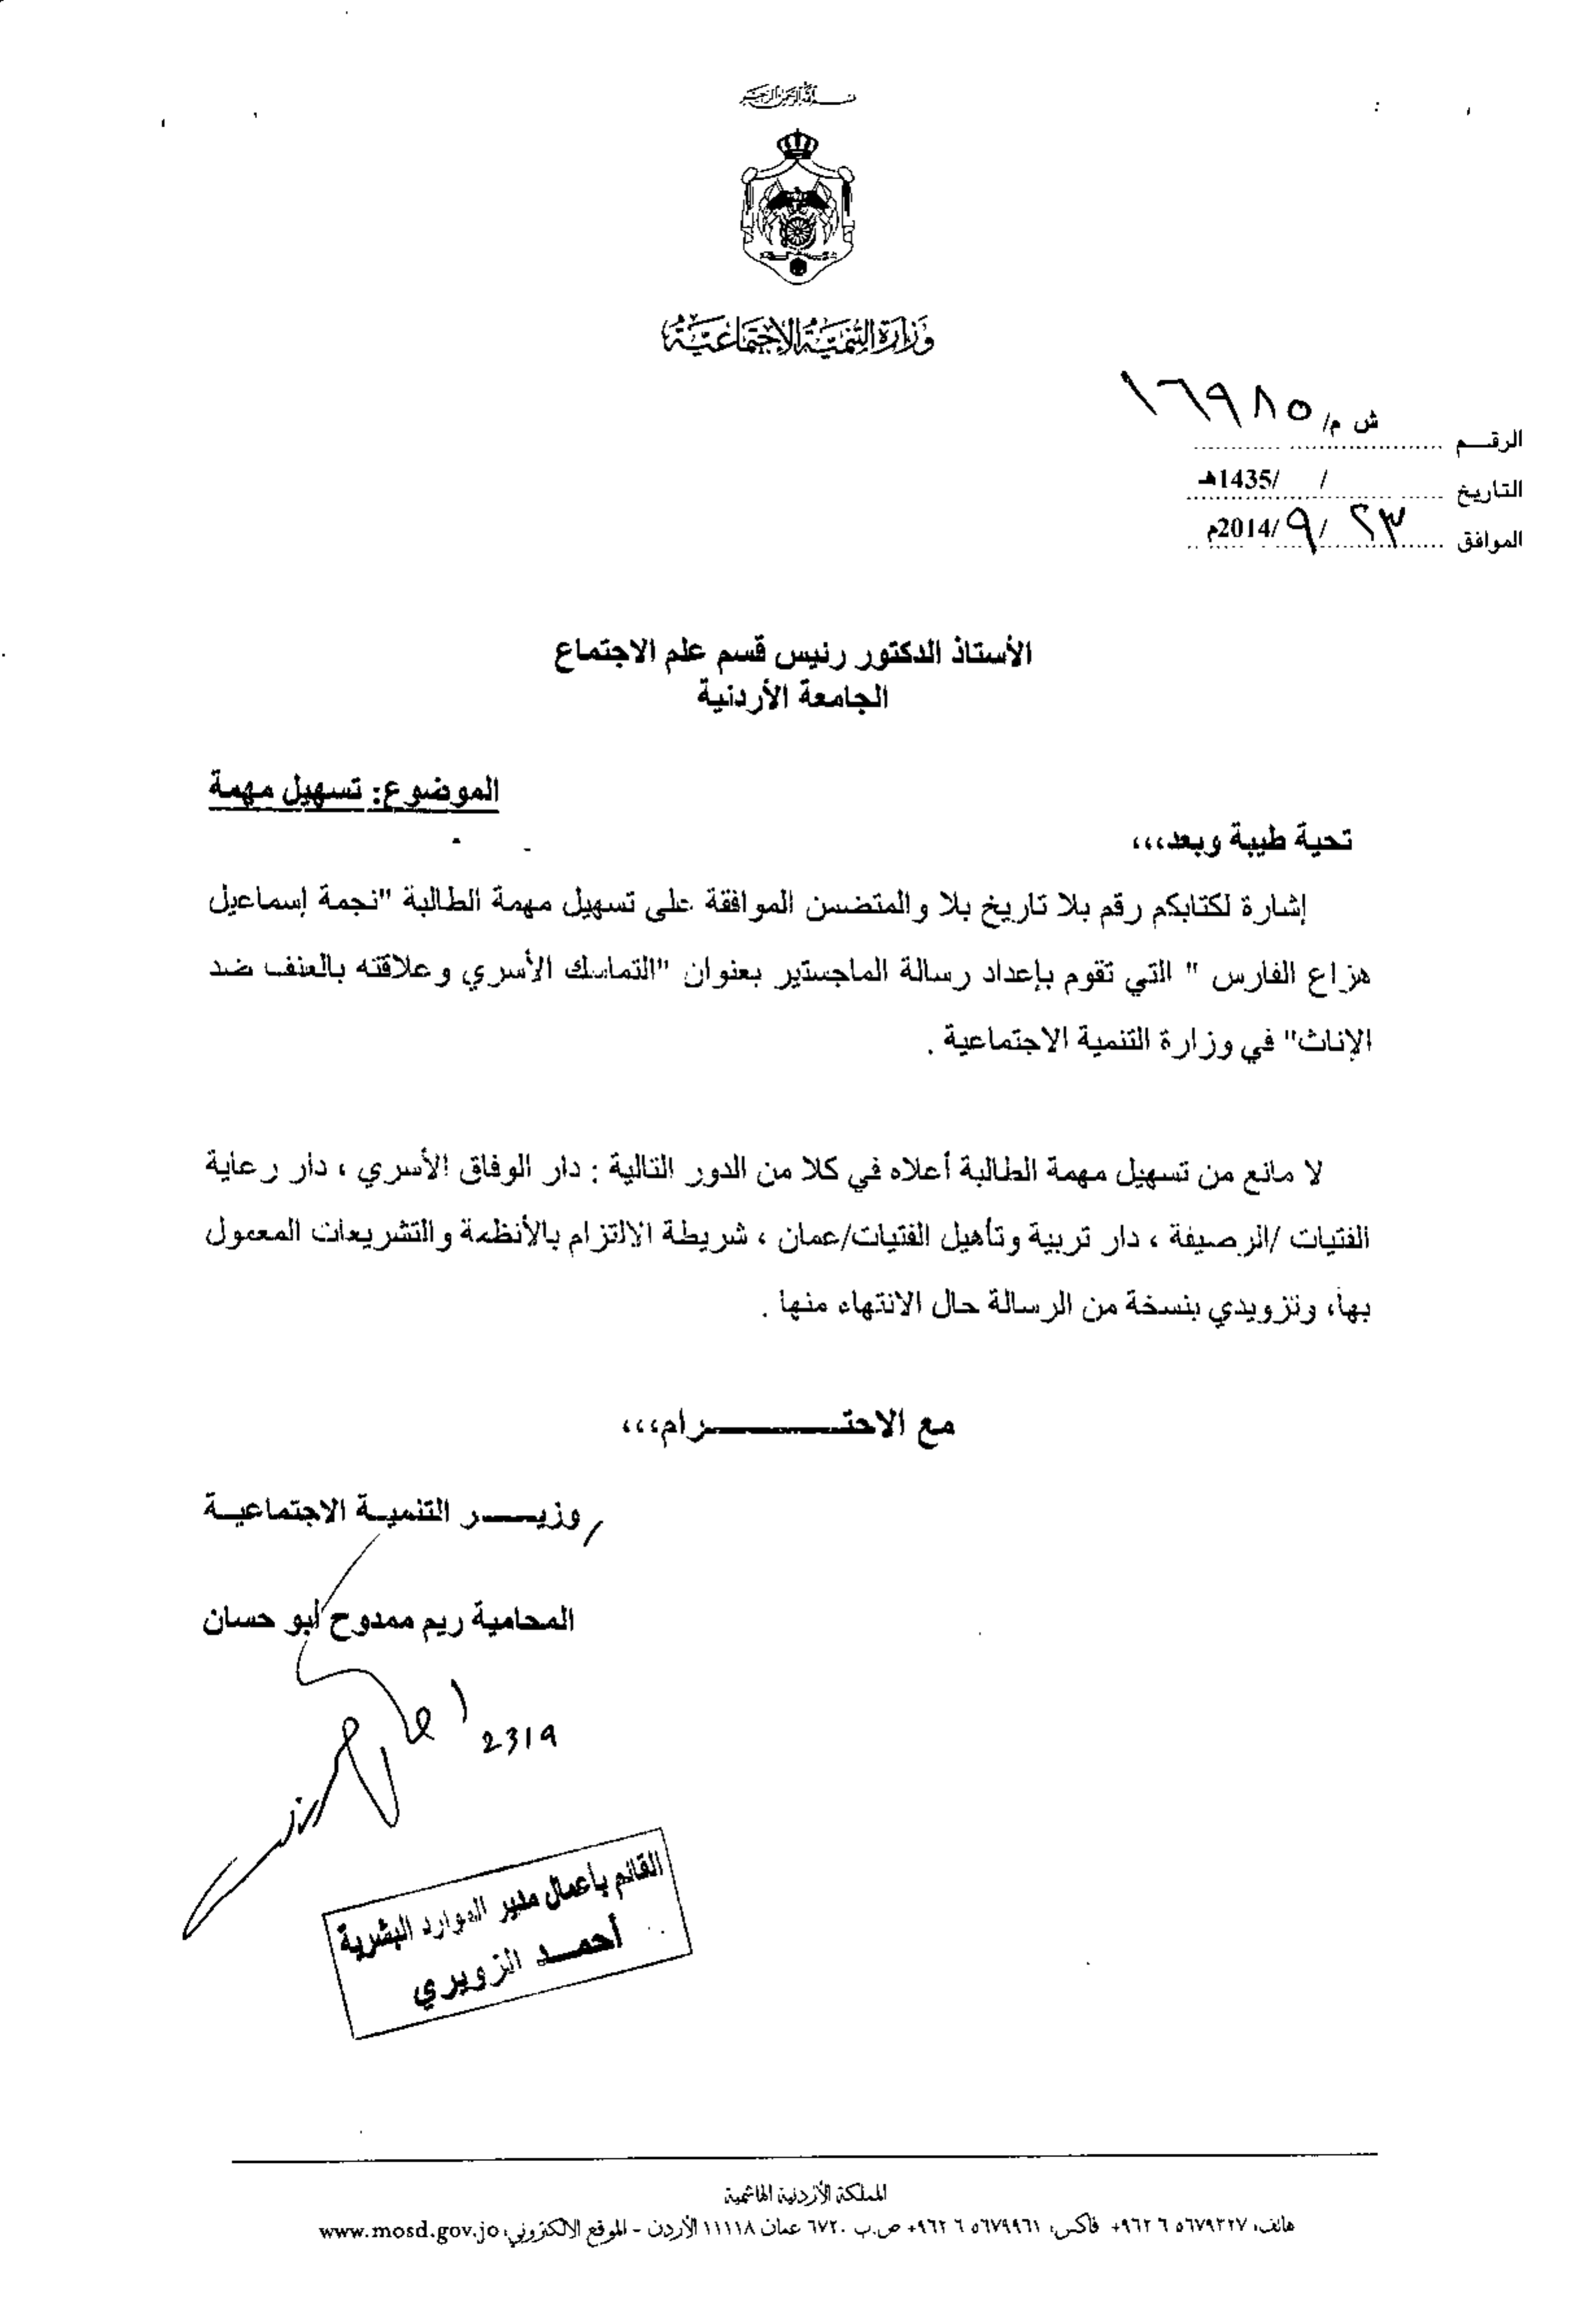 بسم الله الرحمن الرحيم
وزارة التنمية الاجتماعية
الرقـــم ش م/ ١٦٩٨٥
التاريخ / /1435هـ
الموافق ٢٣ /٩ /2014م
الأستاذ الدكتور رئيس قسم علم الاجتماع
الجامعة الأردنية
الموضوع: تسهيل مهمة
تحية طيبة وبعد،،،
إشارة لكتابكم رقم بلا تاريخ بلا والمتضمن الموافقة على تسهيل مهمة الطالبة "نجمة إسماعيل
هزاع الفارس " التي تقوم بإعداد رسالة الماجستير بعنوان "التماسك الأسري وعلاقته بالعنف ضد
الإناث" في وزارة التنمية الاجتماعية .
لا مانع من تسهيل مهمة الطالبة أعلاه في كلا من الدور التالية : دار الوفاق الأسري ، دار رعاية
الفتيات /الرصيفة ، دار تربية وتأهيل الفتيات/عمان ، شريطة الالتزام بالأنظمة والتشريعات المعمول
بها، وتزويدي بنسخة من الرسالة حال الانتهاء منها .
مع الاحتـــــــــرام،،،
/ وزيـــــر التنميـة الاجتماعيـة
المحامية ريم ممدوح أبو حسان
2319
القائم بأعمال مدير الموارد البشرية
أحمـــد الزويري
المملكة الأردنية الهاشمية
هاتف: ٥٦٧٩٣٢٧ ٦ ٩٦٢+ فاكس: ٥٦٧٩٩٦١ ٦ ٩٦٢+ ص.ب ٦٧٢٠ عمان ١١١١٨ الأردن - الموقع الالكتروني: www.mosd.gov.jo